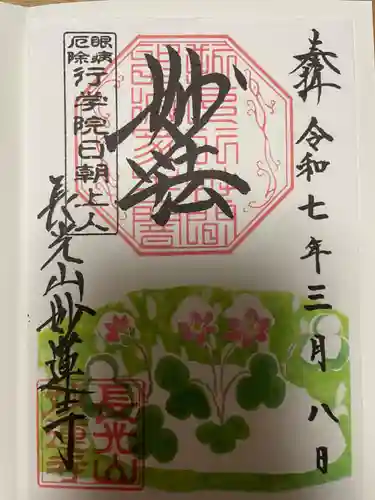 奉拝 令和七年三月八日
妙法
眼病
厄除
行学院日朝上人
長光山妙蓮寺
長光山
妙蓮寺